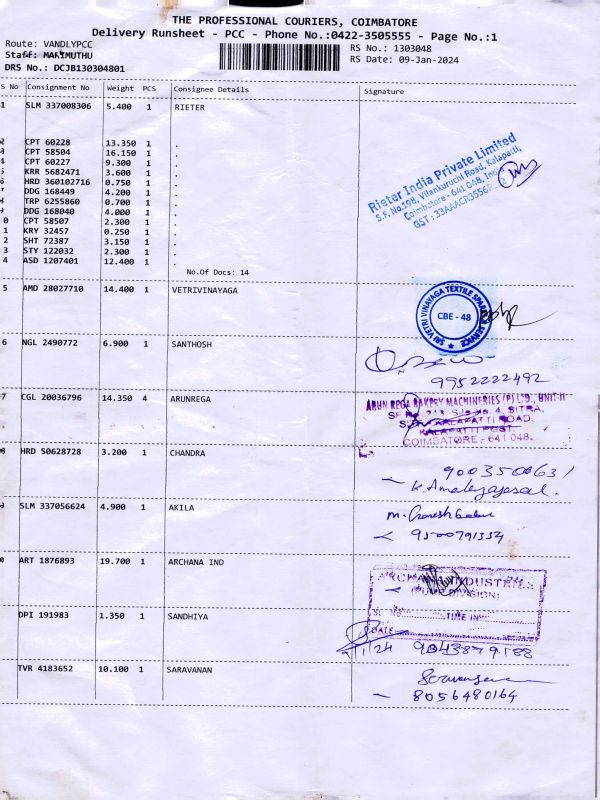 THE PROFESSIONAL COURIERS, COIMBATORE
Delivery Runsheet - PCC - Phone No.:0422-3505555 - Page No.:1
Route: VANDLYPCC
RS No.: 1303048
Staff: MARIMUTHU
RS Date: 09-Jan-2024
DRS No.: DCJB130304801
S No Consignment No Weight PCS Consignee Details Signature
1 SLM 337008306 5.400 1 RIETER
2 CPT 60228 13.350 1 .
3 CPT 58504 16.150 1 .
4 CPT 60227 9.300 1 .
5 KRR 5682471 3.600 1 .
6 HRD 360102716 0.750 1 .
7 DDG 168449 4.200 1 .
8 TRP 6255860 0.700 1 .
9 DDG 168040 4.000 1 .
0 CPT 58507 2.300 1 .
1 KRY 32457 0.250 1 .
2 SHT 72387 3.150 1 .
3 STY 122032 2.300 1 .
4 ASD 1207401 12.400 1 .
No.Of Docs: 14
Rieter India Private Limited
S.F. No.198, Vilankuruchi Road, Kalapatti,
Coimbatore - 641 048, India
GST : 33AAACR3556P
5 AMD 28027710 14.400 1 VETRIVINAYAGA
SRI VETRI VINAYAGA TEXTILE SPARES & SERVICE
CBE - 48
6 NGL 2490772 6.900 1 SANTHOSH
9952222492
7 CGL 20036796 14.350 4 ARUNREGA
ARUN REGA BAKERY MACHINERIES (P) LTD., UNIT-II
4, SITRA,
KALAPATTI ROAD,
KALAPATTI POST
COIMBATORE - 641 048.
8 HRD 50628728 3.200 1 CHANDRA
9003500631
9 SLM 337056624 4.900 1 AKILA
9500791334
0 ART 1876893 19.700 1 ARCHANA IND
ARCHANA INDUSTRIES
(PUMP DIVISION)
TIME IN
DATE
DPI 191983 1.350 1 SANDHIYA
9/1/24 9043879188
TVR 4183652 10.100 1 SARAVANAN
8056480164